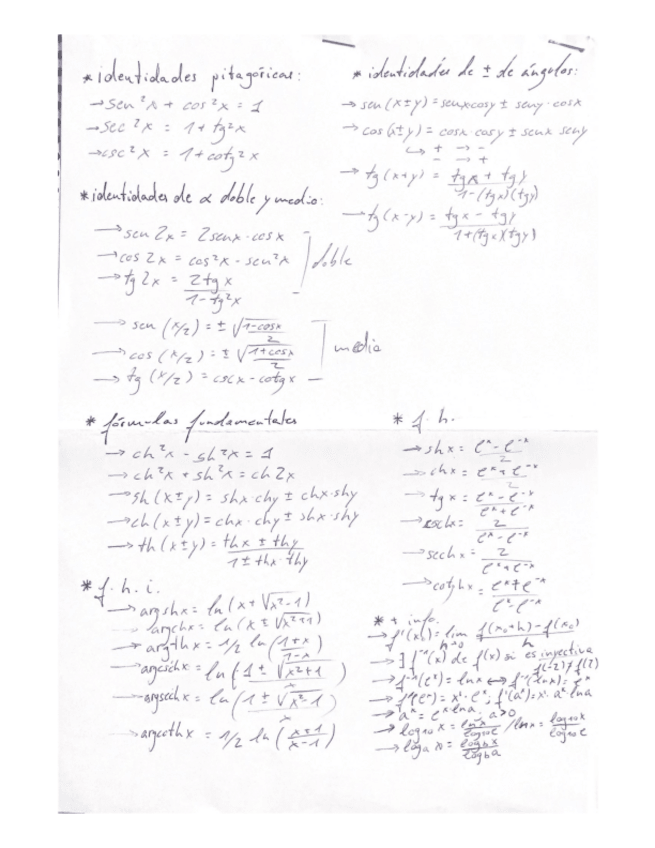 * identidades pitagóricas:
→ sen²x + cos²x = 1
→ sec²x = 1 + tg²x
→ csc²x = 1 + cotg²x
* identidades de ± de ángulos:
→ sen (x±y) = senx cosy ± seny · cosx
→ cos (x±y) = cosx · cosy ± senx seny
↳ + → -
- → +
→ tg (x+y) = (tgx + tgy) / (1-(tgx)(tgy))
→ tg (x-y) = (tgx - tgy) / (1+(tgx)(tgy))
* identidades de α doble y medio:
→ sen 2x = 2senx · cosx
→ cos 2x = cos²x - sen²x
→ tg 2x = 2tgx / (1-tg²x)
doble
→ sen (x/2) = ± √(1-cosx / 2)
→ cos (x/2) = ± √(1+cosx / 2)
→ tg (x/2) = cscx - cotgx
medio
* fórmulas fundamentales
→ ch²x - sh²x = 1
→ ch²x + sh²x = ch 2x
→ sh (x±y) = shx · chy ± chx · shy
→ ch (x±y) = chx · chy ± shx · shy
→ th (x±y) = (thx ± thy) / (1 ± thx · thy)
* f. h.
→ shx = (eˣ - e⁻ˣ) / 2
→ chx = (eˣ + e⁻ˣ) / 2
→ tgx = (eˣ - e⁻ˣ) / (eˣ + e⁻ˣ)
→ cschx = 2 / (eˣ - e⁻ˣ)
→ sechx = 2 / (eˣ + e⁻ˣ)
→ cotghx = (eˣ + e⁻ˣ) / (eˣ - e⁻ˣ)
* f. h. i.
→ argshx = ln (x + √(x²-1))
→ argchx = ln (x ± √(x²+1))
→ argthx = 1/2 ln ((1+x) / (1-x))
→ argcschx = ln ((1 ± √(x²+1)) / x)
→ argsechx = ln ((1 ± √(x²-1)) / x)
→ argcothx = 1/2 ln ((x+1) / (x-1))
* + info.
→ f'(x₀) = lim h→0 (f(x₀+h) - f(x₀)) / h
→ ∃ f⁻¹(x) de f(x) si es inyectiva
f(-2) ≠ f(2)
→ f⁻¹(eˣ) = lnx ↔ f⁻¹(lnx) = eˣ
→ f'(eˣ) = x' · eˣ ; f'(aˣ) = x' · aˣ · lna
→ aˣ = eˣ·lna, a>0
→ log₁₀ x = lnx / log₁₀e / lnx = log₁₀x / log₁₀e
→ logₐ x = log_b x / log_b a